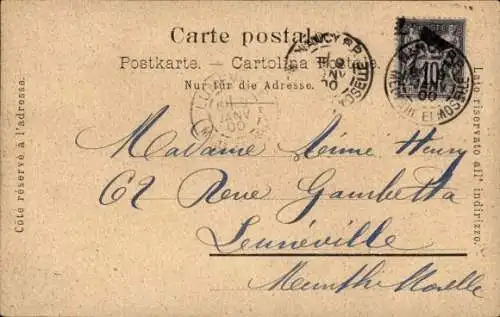 Carte postale.
Postkarte. — Cartolina Postale.
Nur für die Adresse.
Côté réservé à l'adresse.
Lato riservato all' indirizzo.
NANCY
MOSELLE
10
LUN
JANV
00
MEURTHE ET MOSELLE
Madame Aimé Henry
62 Rue Gambetta
Lunéville
Meurthe Moselle